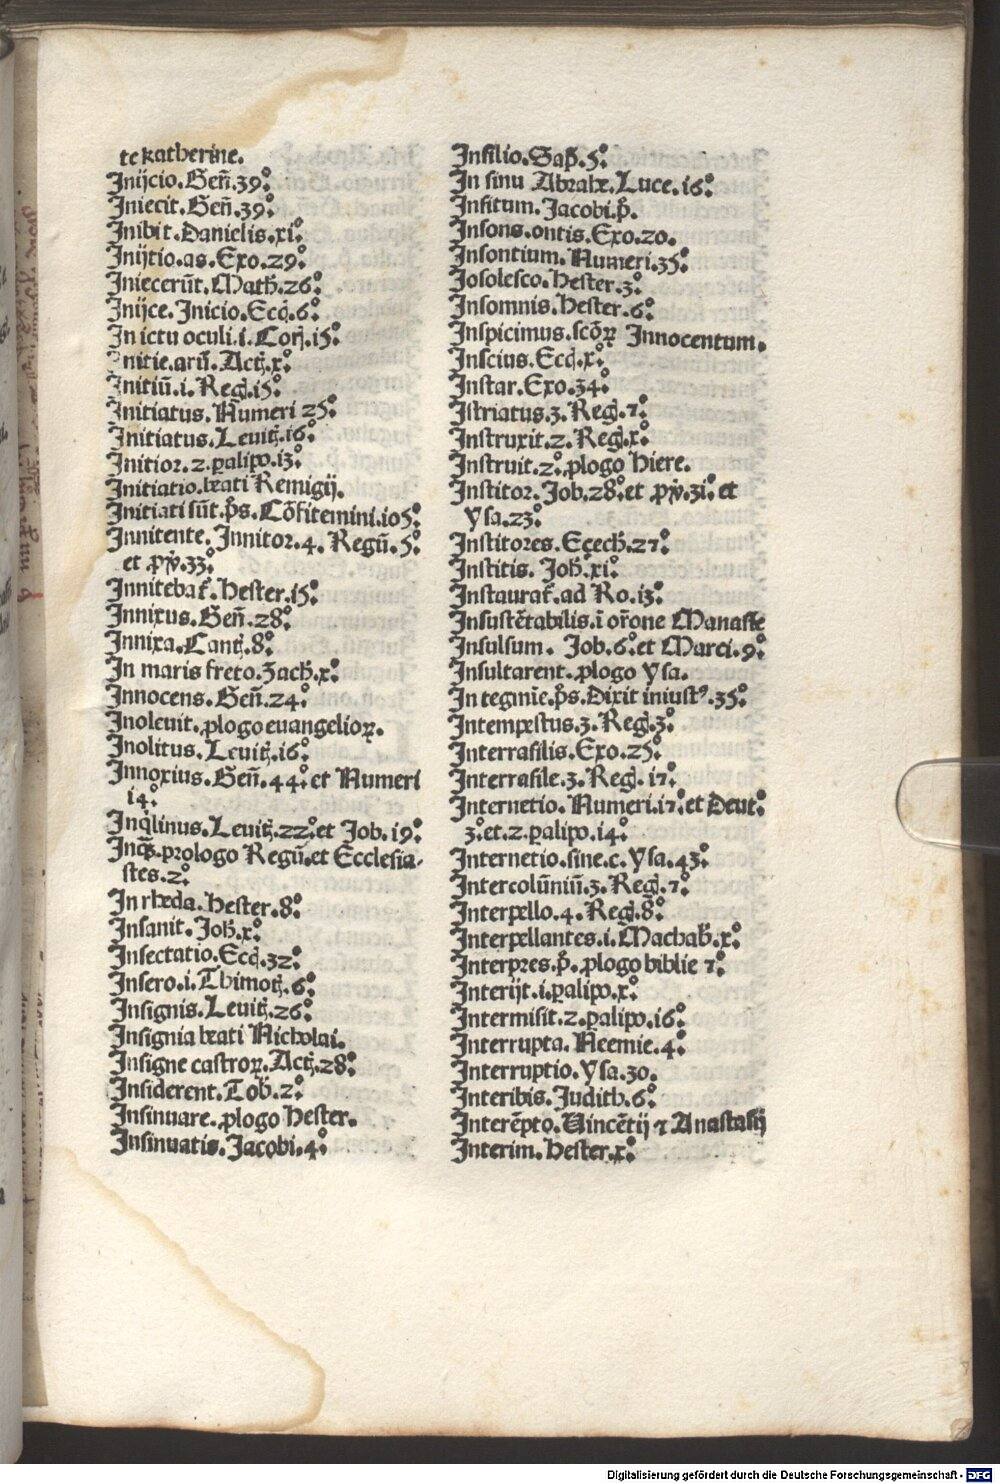 te katherine.
Inijcio. Gen̄. 39°.
Iniecit. Gen̄. 39°.
Inibit. Danielis. xi°.
Inijtio. as. Exo. 29°.
Iniecerūt. Math̄. 26°.
Inijce. Inicio. Eccī. 6°.
In ictu oculi. i. Corī. 15°.
Initie. arū. Actꝫ. x°.
Initiū. i. Regꝭ. 15°.
Initiatus. Numeri 25°.
Initiatus. Leuitꝫ. 16°.
Initior. 2. ꝑalipo. 13°.
Initiatio. beati Remigij.
Initiati sūt. p̄s. Cōfitemini. 105°.
Innitente. Innitor. 4. Regū. 5°.
et ꝓv̄. 33°.
Innitebaꝶ. Hester. 15°.
Innixus. Gen̄. 28°.
Innixa. Cantꝫ. 8°.
In maris freto. Zach̄. x°.
Innocens. Gen̄. 24°.
Inoleuit. ꝓlogo euangelioꝝ.
Inolitus. Leuitꝫ. 16°.
Innoxius. Gen̄. 44°. et Numeri
14°.
Inq̇linus. Leuitꝫ. 22°. et Job. 19°.
Inqꝫ. prologo Regū. et Ecclesia-
stes. 2°.
In rheda. Hester. 8°.
Insanit. Joh̄. x°.
Insectatio. Eccī. 32°.
Insero. i. Thimotꝫ. 6°.
Insignis. Leuitꝫ. 26°.
Insignia beati Nicholai.
Insigne castroꝝ. Actꝫ. 28°.
Insiderent. Tob̄. 2°.
Insinuare. ꝓlogo Hester.
Insinuatis. Jacobi. 4°.
Insilio. Sap̄. 5°.
In sinu Abrahe. Luce. 16°.
Insitum. Jacobi. p̄.
Insons. ontis. Exo. 20.
Insontium. Numeri. 35°.
Iosolesco. Hester. 3°.
Insomnis. Hester. 6°.
Inspicimus. scōꝝ Innocentum.
Inscius. Eccī. x°.
Instar. Exo. 34°.
Istriatus. 3. Regꝭ. 7°.
Instruxit. 2. Regꝭ. x°.
Instruit. 2°. ꝓlogo Hiere.
Institor. Job. 28°. et ꝓv̄. 31°. et
Ysa. 23°.
Institores. Eçech̄. 27°.
Institis. Joh̄. xi°.
Instauraꝶ. ad Ro. 13°.
Insustētabilis. ī or̄one Manasse
Insulsum. Job. 6°. et Marci. 9°.
Insultarent. ꝓlogo Ysa.
In tegmīe. p̄s. Dixit iniustꝰ. 35°.
Intempestus. 3. Regꝭ. 3°.
Interrasilis. Exo. 25°.
Interrasile. 3. Regꝭ. 17°.
Internetio. Numeri. 17°. et Deut°.
3°. et. 2. ꝑalipo. 14°.
Internetio. sine. c. Ysa. 43°.
Intercolūniū. 3. Regꝭ. 7°.
Interpello. 4. Regꝭ. 8°.
Interpellantes. i. Machab̄. x°.
Interpres. p̄. ꝓlogo biblie 7°.
Interijt. i. ꝑalipo. x°.
Intermisit. 2. ꝑalipo. 16°.
Interrupta. Neemie. 4°.
Interruptio. Ysa. 30.
Interibis. Judith. 6°.
Interēpto. Vincētij ⁊ Anastasij
Interim. Hester. x°.
Digitalisierung gefördert durch die Deutsche Forschungsgemeinschaft - DFG